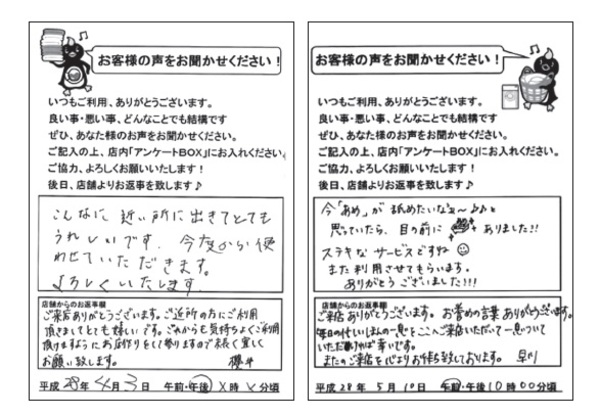 お客様の声をお聞かせください！
いつもご利用、ありがとうございます。
良い事・悪い事、どんなことでも結構です
ぜひ、あなた様のお声をお聞かせください。
ご記入の上、店内「アンケートBOX」にお入れください。
ご協力、よろしくお願いいたします！
後日、店舗よりお返事を致します♪
こんなに近い所に出きてとても
うれしいです。今度から使
わせていただきます。
よろしくいたします。
店舗からのお返事欄
ご来店ありがとうございます。ご近所の方にご利用
頂きましてとても嬉しいです。これからも気持ちよくご利用
頂けますようにお店作りをして参りますので末長く宜しく
お願い致します。 櫻井
平成28年4月3日 午前・午後 時 分頃
お客様の声をお聞かせください！
いつもご利用、ありがとうございます。
良い事・悪い事、どんなことでも結構です
ぜひ、あなた様のお声をお聞かせください。
ご記入の上、店内「アンケートBOX」にお入れください。
ご協力、よろしくお願いいたします！
後日、店舗よりお返事を致します♪
今「あめ」が舐めたいなぁ〜♪♪と
思っていたら、目の前に ありました!!
ステキなサービスですね
また利用させてもらいます。
ありがとうございました!!!
店舗からのお返事欄
ご来店ありがとうございます。お誉めの言葉ありがとうございます。
毎日の忙しい の一息をここへご来店いただいて一息ついて
いただければ幸いです。
またのご来店を心よりお待ち致しております。
平成28年5月10日 午前・午後10時00分頃